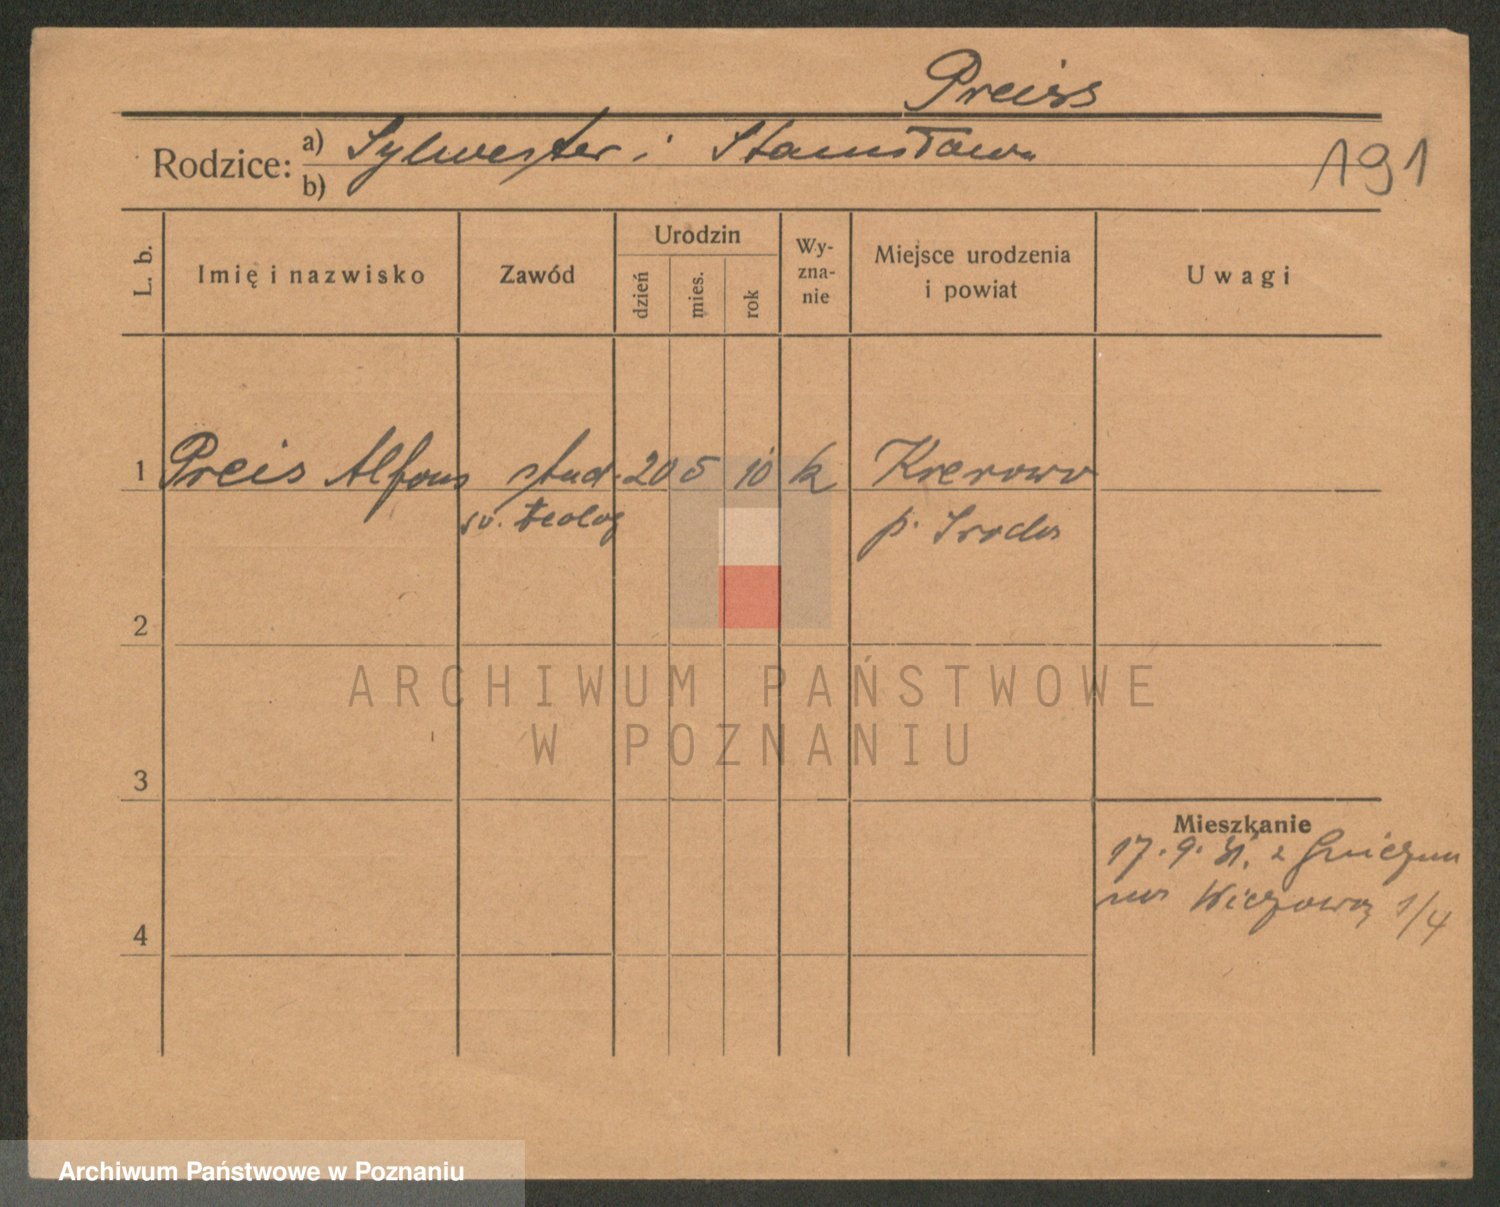 Preiss
Rodzice: a) Sylwester i Stanisława
b)
191
L. b.
Imię i nazwisko
Zawód
Urodzin
dzień
mies.
rok
Wy-
zna-
nie
Miejsce urodzenia
i powiat
Uwagi
1 Preis Alfons stud. 20 5 10 k Krerowo
św. teolog p. Sroda
2
ARCHIWUM PAŃSTWOWE
W POZNANIU
3
Mieszkanie
17. 9. 31. z
4
1/4
Archiwum Państwowe w Poznaniu